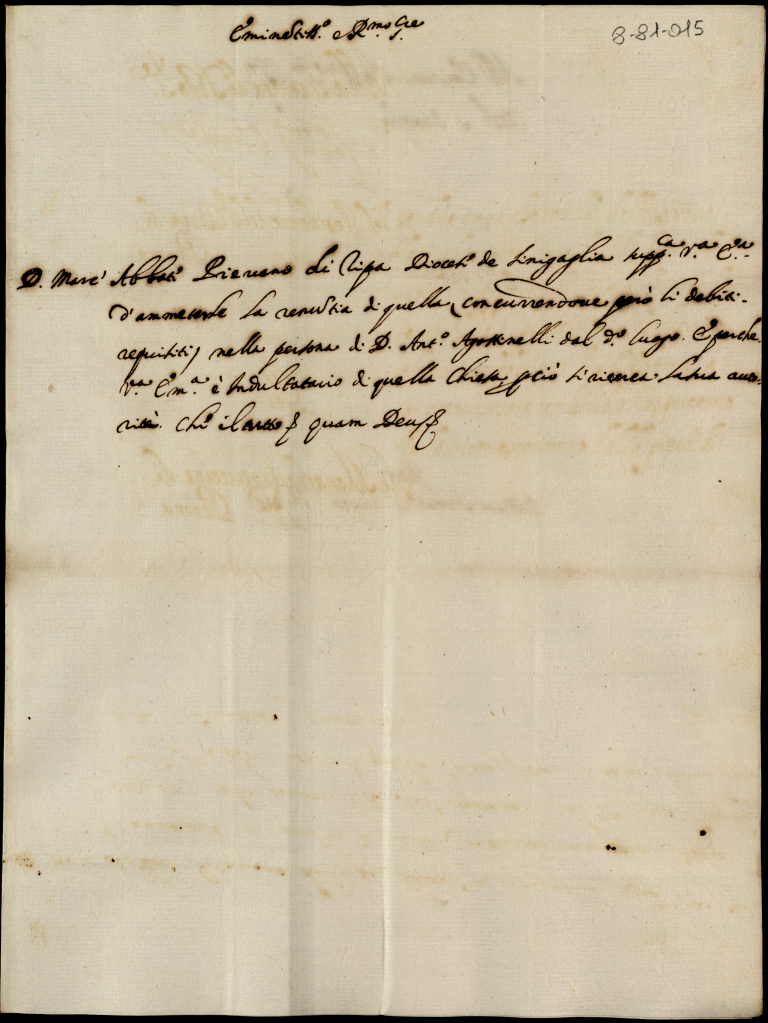 Eminentiss.º e R.mo Sre
8-81-015
D. Marc' Abbati Pievano di Ripa Diocesi de Sinigaglia supp.ca V.ra E.za
d'ammeterle la renuntia di quella (concurrendove però li debiti
requisiti) nella persona di D. Ant.º Agostinelli dal d.º luogo. E perche
V.ra Em.za è Indultatario di quella Chiesa, perciò si ricerca la sua auto-
rità. Che il tutto quam Deus